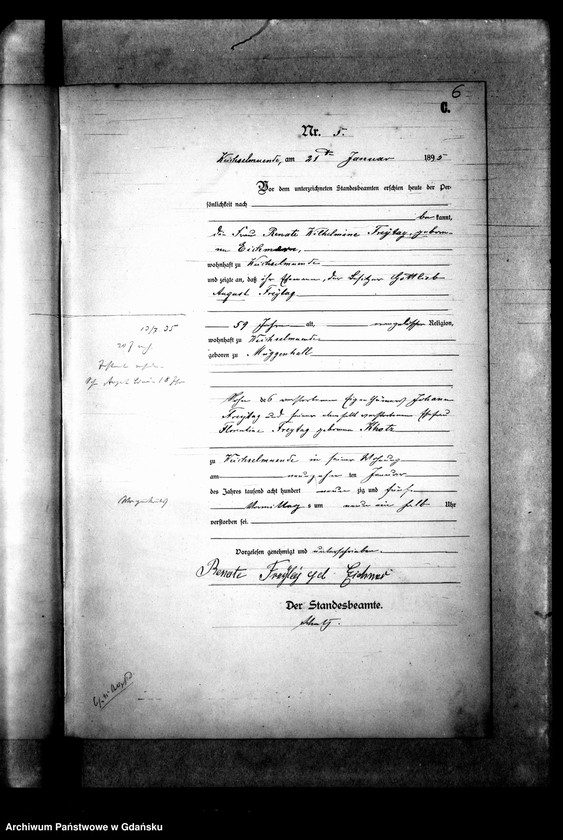 6
C.
Nr. 5.
Weichselmuende, am 21ten Januar 1895
Vor dem unterzeichneten Standesbeamten erschien heute der Per-
sönlichkeit nach
be kannt,
die Frau Renate Wilhelmine Freytag, gebore-
ne
wohnhaft zu Weichselmuende
und zeigte an, daß ihr Ehemann, der Besitzer Gottlieb
August Freytag
59 Jahre alt, evangelischer Religion,
wohnhaft zu Weichselmuende
geboren zu Müggenhall
Sohn des verstorbenen Eigenthümers Johann
Freytag und seiner verstorbenen Ehefrau
Florentine Freytag geborenen
zu Weichselmuende in seiner Wohnung
am neunzehnten Januar
des Jahres tausend acht hundert neun zig und fünf
Vormittags um neun ein halb Uhr
verstorben sei.
Vorgelesen, genehmigt und unterschrieben.
Renate Freytag
Der Standesbeamte.
Archiwum Państwowe w Gdańsku